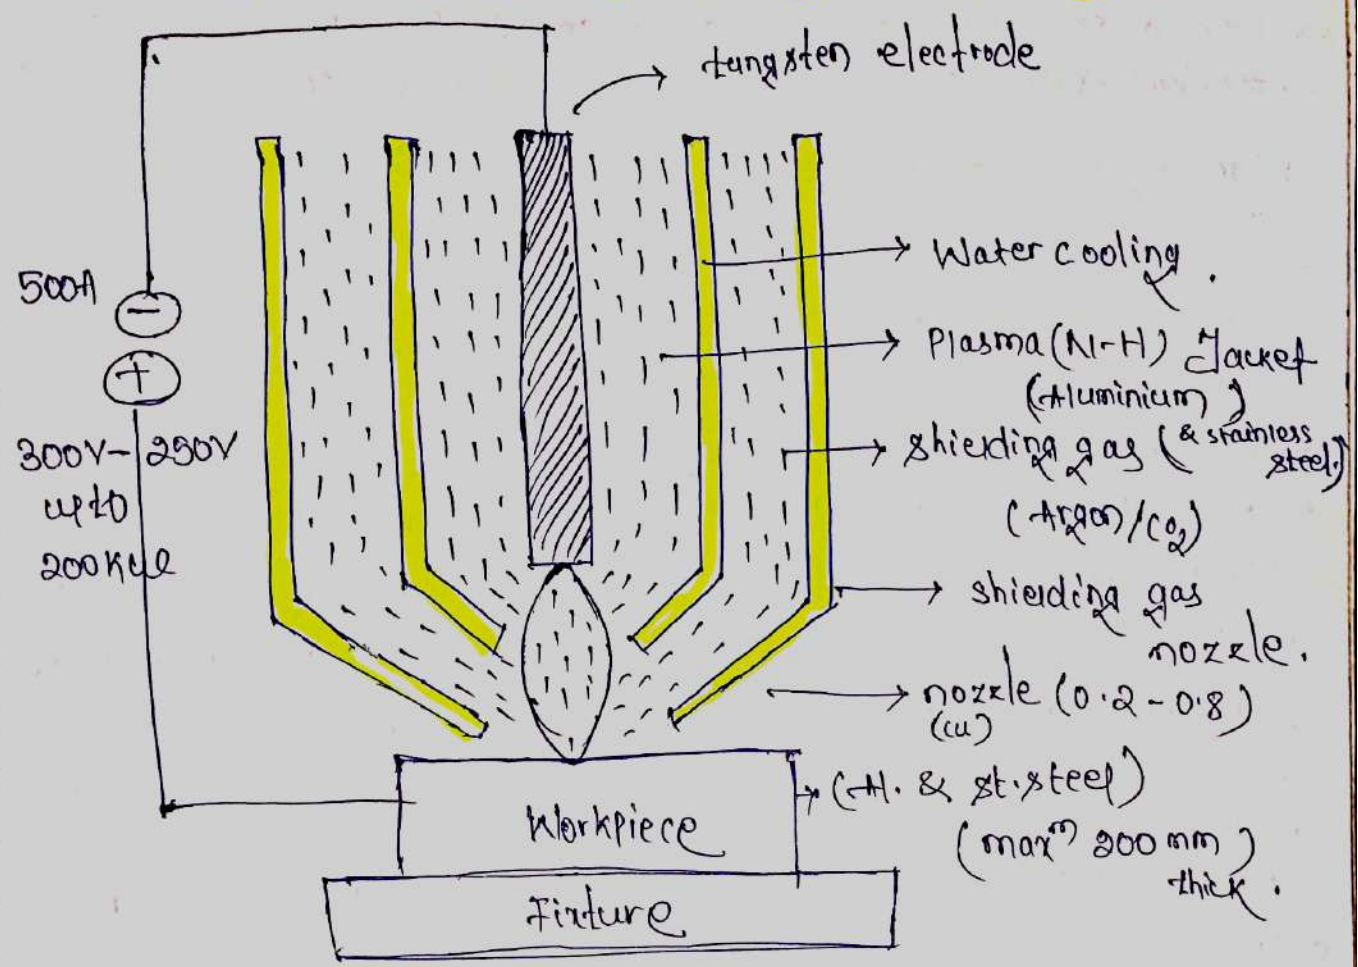 tungsten electrode
500A
−
+
300V- 250V
upto
Water cooling.
Plasma (N-H) Jacket
(Aluminium)
shielding gas (& stainless
steel.)
(Argon/CO₂)
shielding gas
nozzle.
nozzle (0.2 - 0.8)
(cu)
(Al. & st. steel)
(maxᵐ 200 mm)
thick.
Workpiece
Fixture